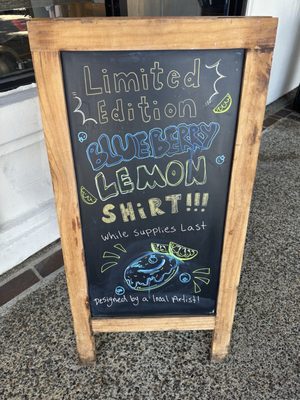 Limited
Edition
BLUEBERRY
LEMON
SHiRT!!!
while supplies Last
Designed by a local Artist!